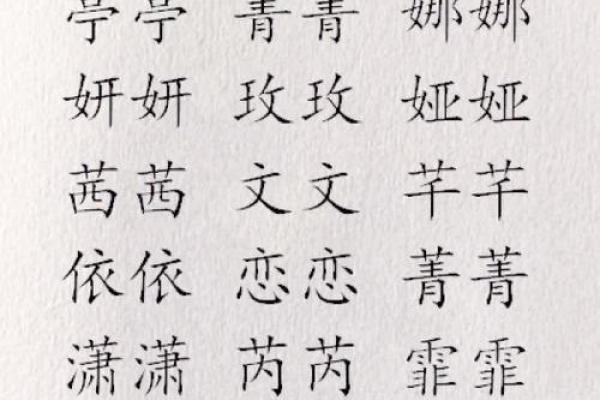 亭亭 青青 娜娜
妍妍 玫玫 娅娅
茜茜 文文 芊芊
依依 恋恋 菁菁
潇潇 芮芮 霏霏